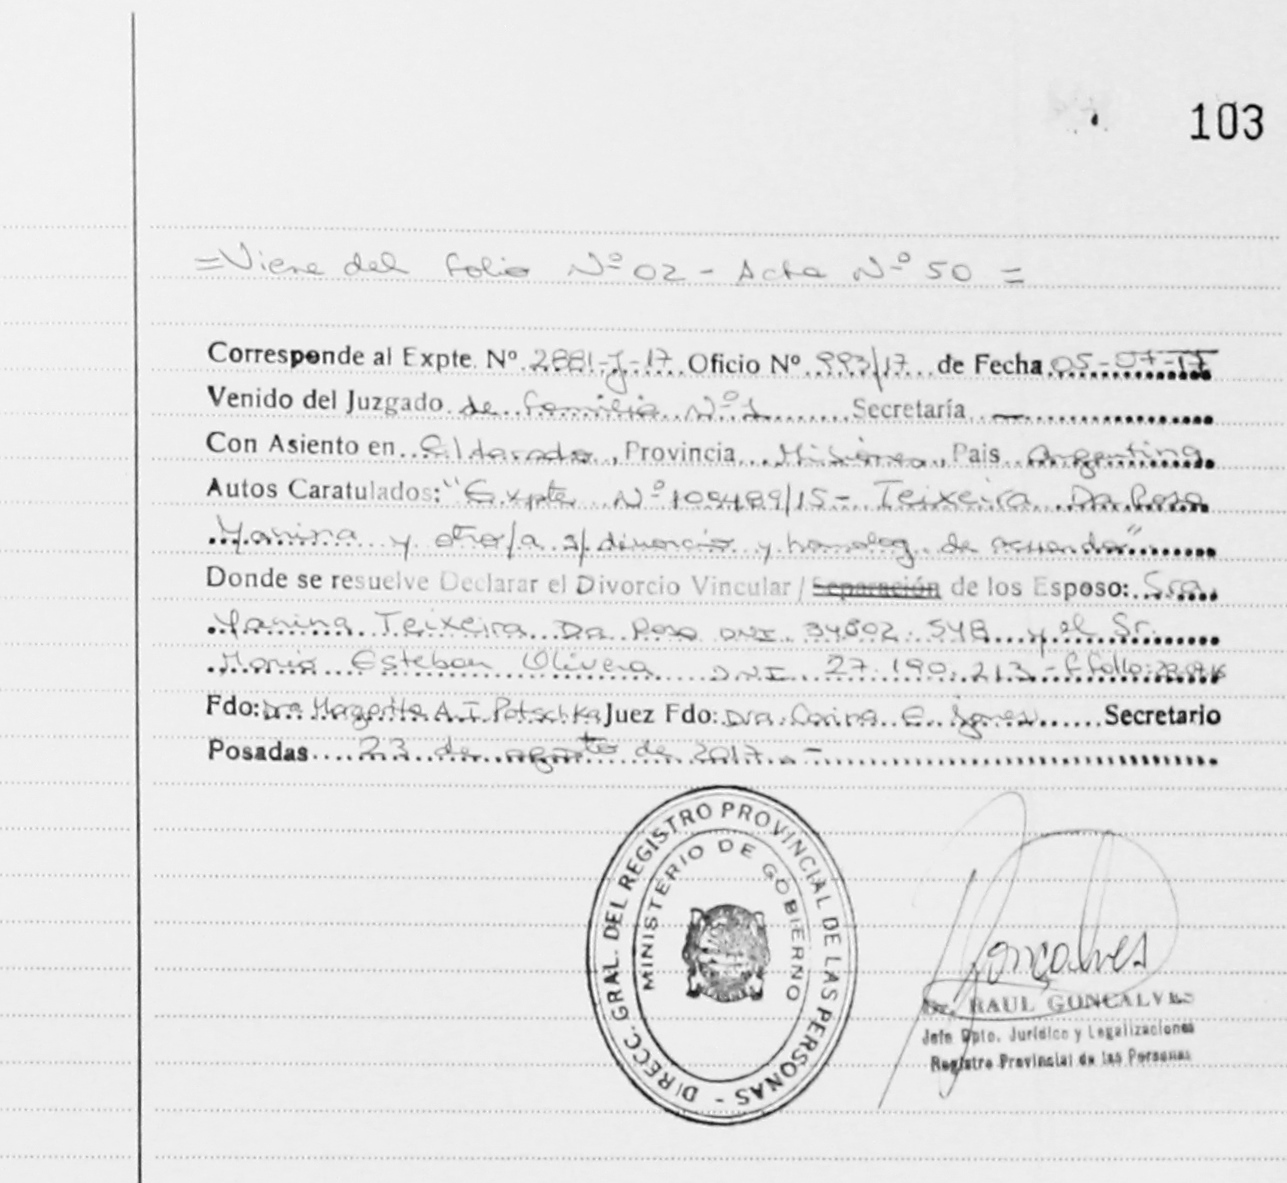 103
=Viene del folio Nº 02 - Acta Nº 50 =
Corresponde al Expte. Nº 2881-J-17 Oficio Nº 993/17 de Fecha 05-07-17
Venido del Juzgado de familia Nº 1 Secretaría —
Con Asiento en Eldorado, Provincia Misiones, Pais Argentina
Autos Caratulados: "Expte Nº 109489/15 - Teixeira Da Rosa
Yanina y otro/a s/ divorcio y homolog. de acuerdo"
Donde se resuelve Declarar el Divorcio Vincular / Separación de los Esposo: Sra.
Yanina Teixeira Da Rosa DNI 34.802.548 y el Sr.
Mario Esteban Olivera DNI 27.190.213 - f fallo:
Fdo: Dra Margarita A. I. Potschka Juez Fdo: Dra. Carina E. Secretario
Posadas 23 de agosto de 2017.-
DIRECC. GRAL. DEL REGISTRO PROVINCIAL DE LAS PERSONAS -
MINISTERIO DE GOBIERNO
Gonçalves
Dr. RAUL GONCALVES
Jefe Dpto. Jurídico y Legalizaciones
Registro Provincial de las Personas